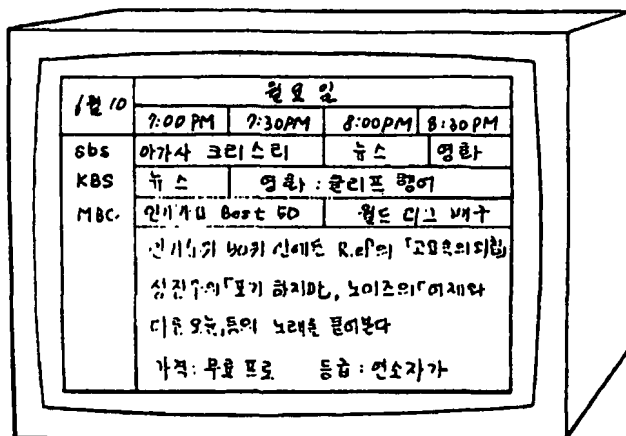 6월 10 월요일
7:00 PM 7:30PM 8:00PM 8:30 PM
SBS 아가사 크리스티 뉴스 영화
KBS 뉴스 영화 : 클리프 행어
MBC 인기가요 Best 50 월드 리그 배구
인기순위 50위 R.ef의 「고요속의 외침
성진우의 「포기 하지마」, 노이즈의 「어제와
다른 오늘」등의 노래를 들어본다
가격: 무료 프로 등급 : 연소자가